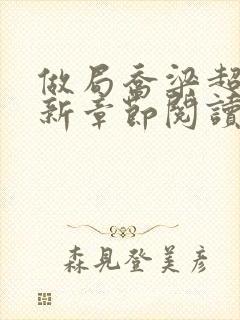 做局喬梁超
新章節閱讀
森見登美彥